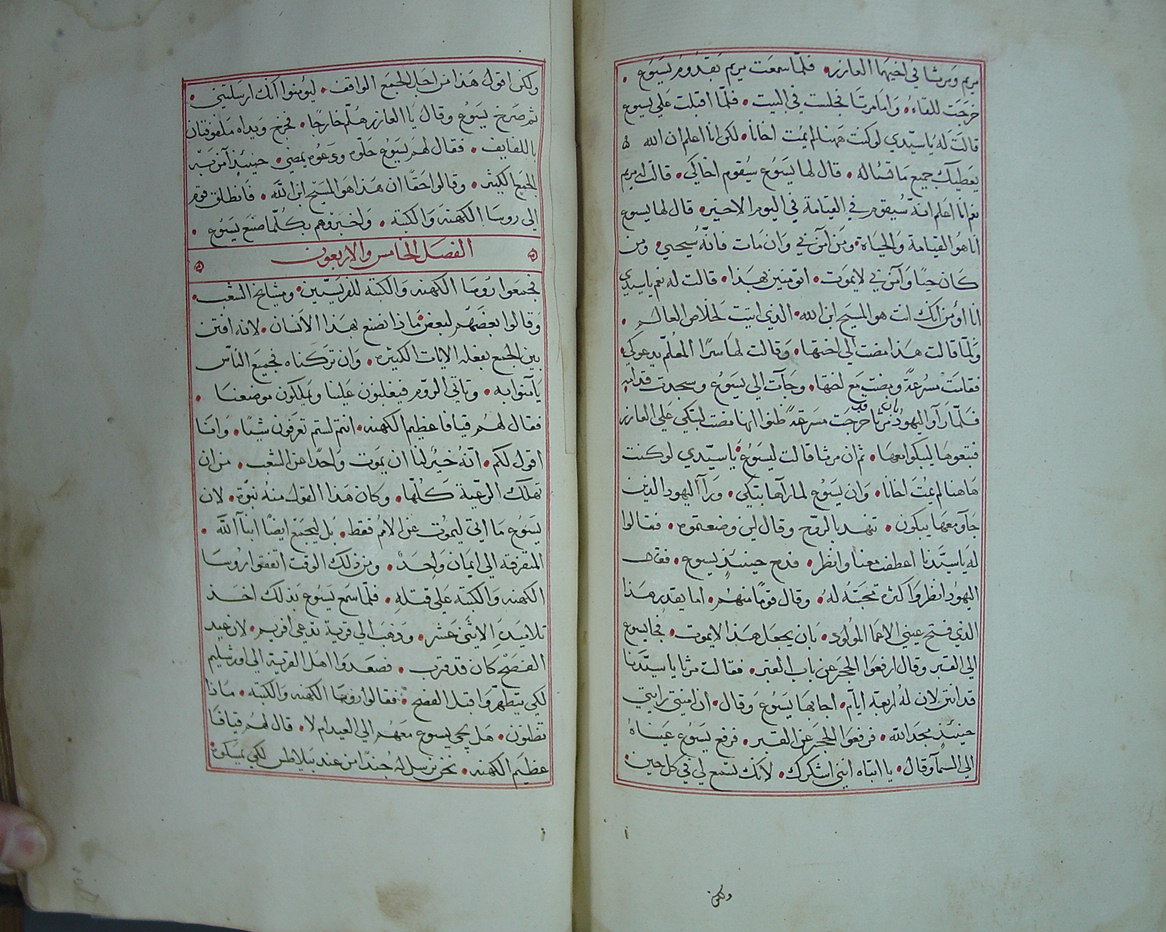 مريم ومرثا في اختهما العازر • فلما سمعت مريم بقدوم يسوع •
خرجت للقاه • واما مرتا فجلست في البيت • فلما اقبلت علي يسوع
قالت له يا سيدي لو كنت ههنا لم يمت اخانا • لكن انا اعلم ان الله
يعطيك جميع ما تسأله • قال لها يسوع سيقوم اخاكي • قالت له مريم
نعم انا اعلم انه سيقوم في القيامة في اليوم الاخير • قال لها يسوع
انا هو القيامة والحياة • ومن آمن بي وان مات فانه سيحيي • ومن
كان حيا وآمن بي لا يموت • اتومنين بهذا • قالت له نعم يا سيدي
انا اومن انك انت هو المسيح ابن الله • الذي اتيت لخلاص العالم •
ولما قالت هذا مضت الي اختها • وقالت لها سرا المعلم يدعوكي
فقامت مسرعة ومضت مع اختها • وجآت الي يسوع وسجدت قدامه
فلما رآو اليهود بان مرثا قد خرجت مسرعة ظنوا انها مضت لتبكي علي العازر
فتبعوها ليبكوا معها • ثم ان مرثا قالت ليسوع يا سيدي لو كنت
هاهنا لم يمت اخانا • وان يسوع لما رآها تبكي • ورآ اليهود الذين
جآو معها يبكون • تنهد بالروح وقال اين وضعتموه • فقالوا
له يا سيدنا اعطف معنا وانظر • فدمع حينيذ يسوع • فقال
اليهود انظروا كثرة محبته له • وقال قوما منهم • اما يقدر هذا
الذي فتح عيني الاعما المولود • بان يجعل هذا لا يموت • فجا يسوع
الي القبر وقال ارفعوا الحجر عن باب القبر • فقالت مرثا يا سيدنا
قد انتن لان له اربعة ايام • اجابها يسوع وقال • ان امنتي رايتي
حينيذ مجد الله • فرفعوا الحجر عن القبر • فرفع يسوع عيناه
الي السمآ وقال • يا ابتاه انني اشكرك • لانك تستمع لي في كل حين
ولكن
ولكن اقول هذا من اجل الجمع الواقف • ليومنوا انك ارسلتني •
ثم صرخ يسوع وقال يا العازر هلم خارجا • فخرج ويداه ملفوفتان
باللفايف • فقال لهم يسوع حلوه ودعوه يمضي • حينيذ آمن به
الجمع الكثير • وقالوا حقا ان هذا هو المسيح ابن الله • فانطلق قوم
الي روسا الكهنة والكتبة • واخبروهم بكلما صنع يسوع •
الفصل الخامس والاربعون
فجمعوا روسا الكهنه والكتبة للفريسين • ومشايخ الشعب •
وقالوا بعضهم لبعض ماذا نصنع بهذا الانسان • لانه افتن
بين الجمع بفعله الايات الكثيره • وان تركناه فجميع الناس
يآمنوا به • وتاتي الروم فيغلبون علينا ويملكون موضعنا •
فقال لهم قيافا عظيم الكهنه • انتم لستم تعرفون شيا • وانا
اقول لكم • انه خير لنا ان يموت واحدا عن الشعب • من ان
تهلك الرعية كلها • وكان هذا القول منه نبوة • لان
يسوع ما اتي ليموت عن الامم فقط • بل ليجمع ايضا ابنآ الله •
المتفرقة الي ايمان واحد • ومن ذلك الوقت اتفقوا روسا
الكهنه والكتبة علي قتله • فلما سمع يسوع بذلك اخذ
تلاميذه الاثني عشر • وذهب الي قرية تدعي افريم • لان عيد
الفصح كان قد قرب • فصعدوا اهل القرية الي اورشليم
لكي يتطهروا قبل الفصح • فقالوا روسا الكهنه والكتبه • ماذا
تظنون • هل يجي يسوع معهم الي العيد ام لا • قال لهم قيافا
عظيم الكهنه • نحن نرسل له جندا من عند بيلاطس لكي يمسكوه